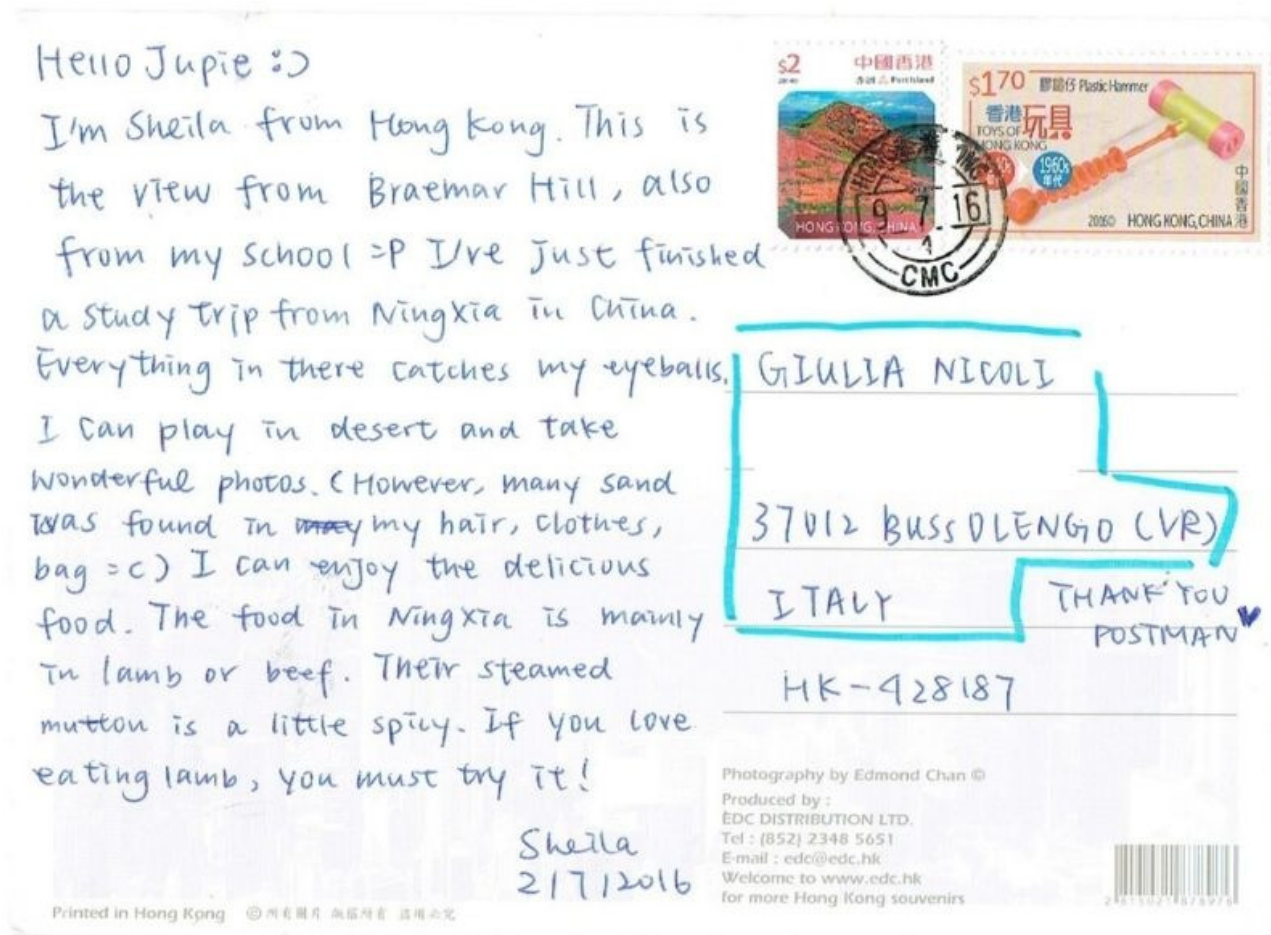 Hello Jupie :)
I'm Sheila from Hong Kong. This is
the view from Braemar Hill, also
from my school =P I've just finished
a study trip from Ningxia in China.
Everything in there catches my eyeballs.
I can play in desert and take
wonderful photos. (However, many sand
was found in my hair, clothes,
bag =c) I can enjoy the delicious
food. The food in Ningxia is mainly
in lamb or beef. Their steamed
mutton is a little spicy. If you love
eating lamb, you must try it!
Sheila
2/7/2016
$2
中國香港
Portland
HONG KONG, CHINA
$1.70 膠鎚仔 Plastic Hammer
香港玩具
TOYS OF HONG KONG
1960s
年代
中國香港
HONG KONG, CHINA
HONG KONG
9 7 16
CMC
GIULIA NICOLI
37012 BUSSOLENGO (VR)
ITALY
THANK YOU
POSTMAN
HK-428187
Photography by Edmond Chan ©
Produced by :
EDC DISTRIBUTION LTD.
Tel : (852) 2348 5651
E-mail : edc@edc.hk
Welcome to www.edc.hk
for more Hong Kong souvenirs
Printed in Hong Kong © 所有圖片 版權所有 盜用必究